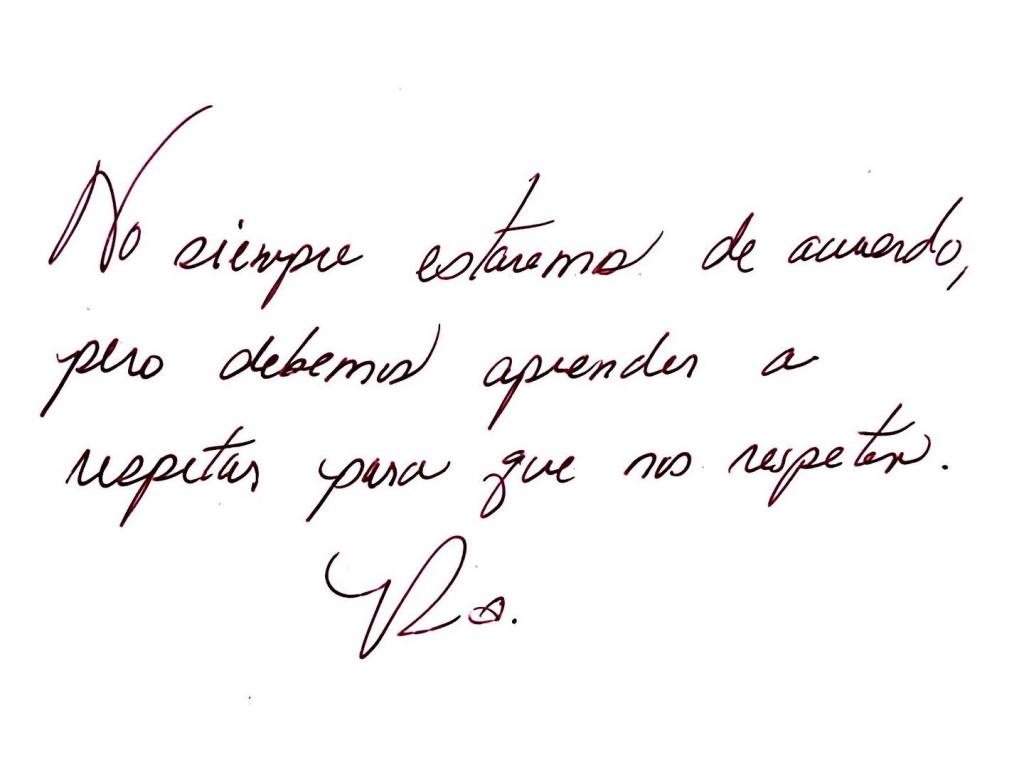 No siempre estaremos de acuerdo,
pero debemos aprender a
respetar para que nos respeten.